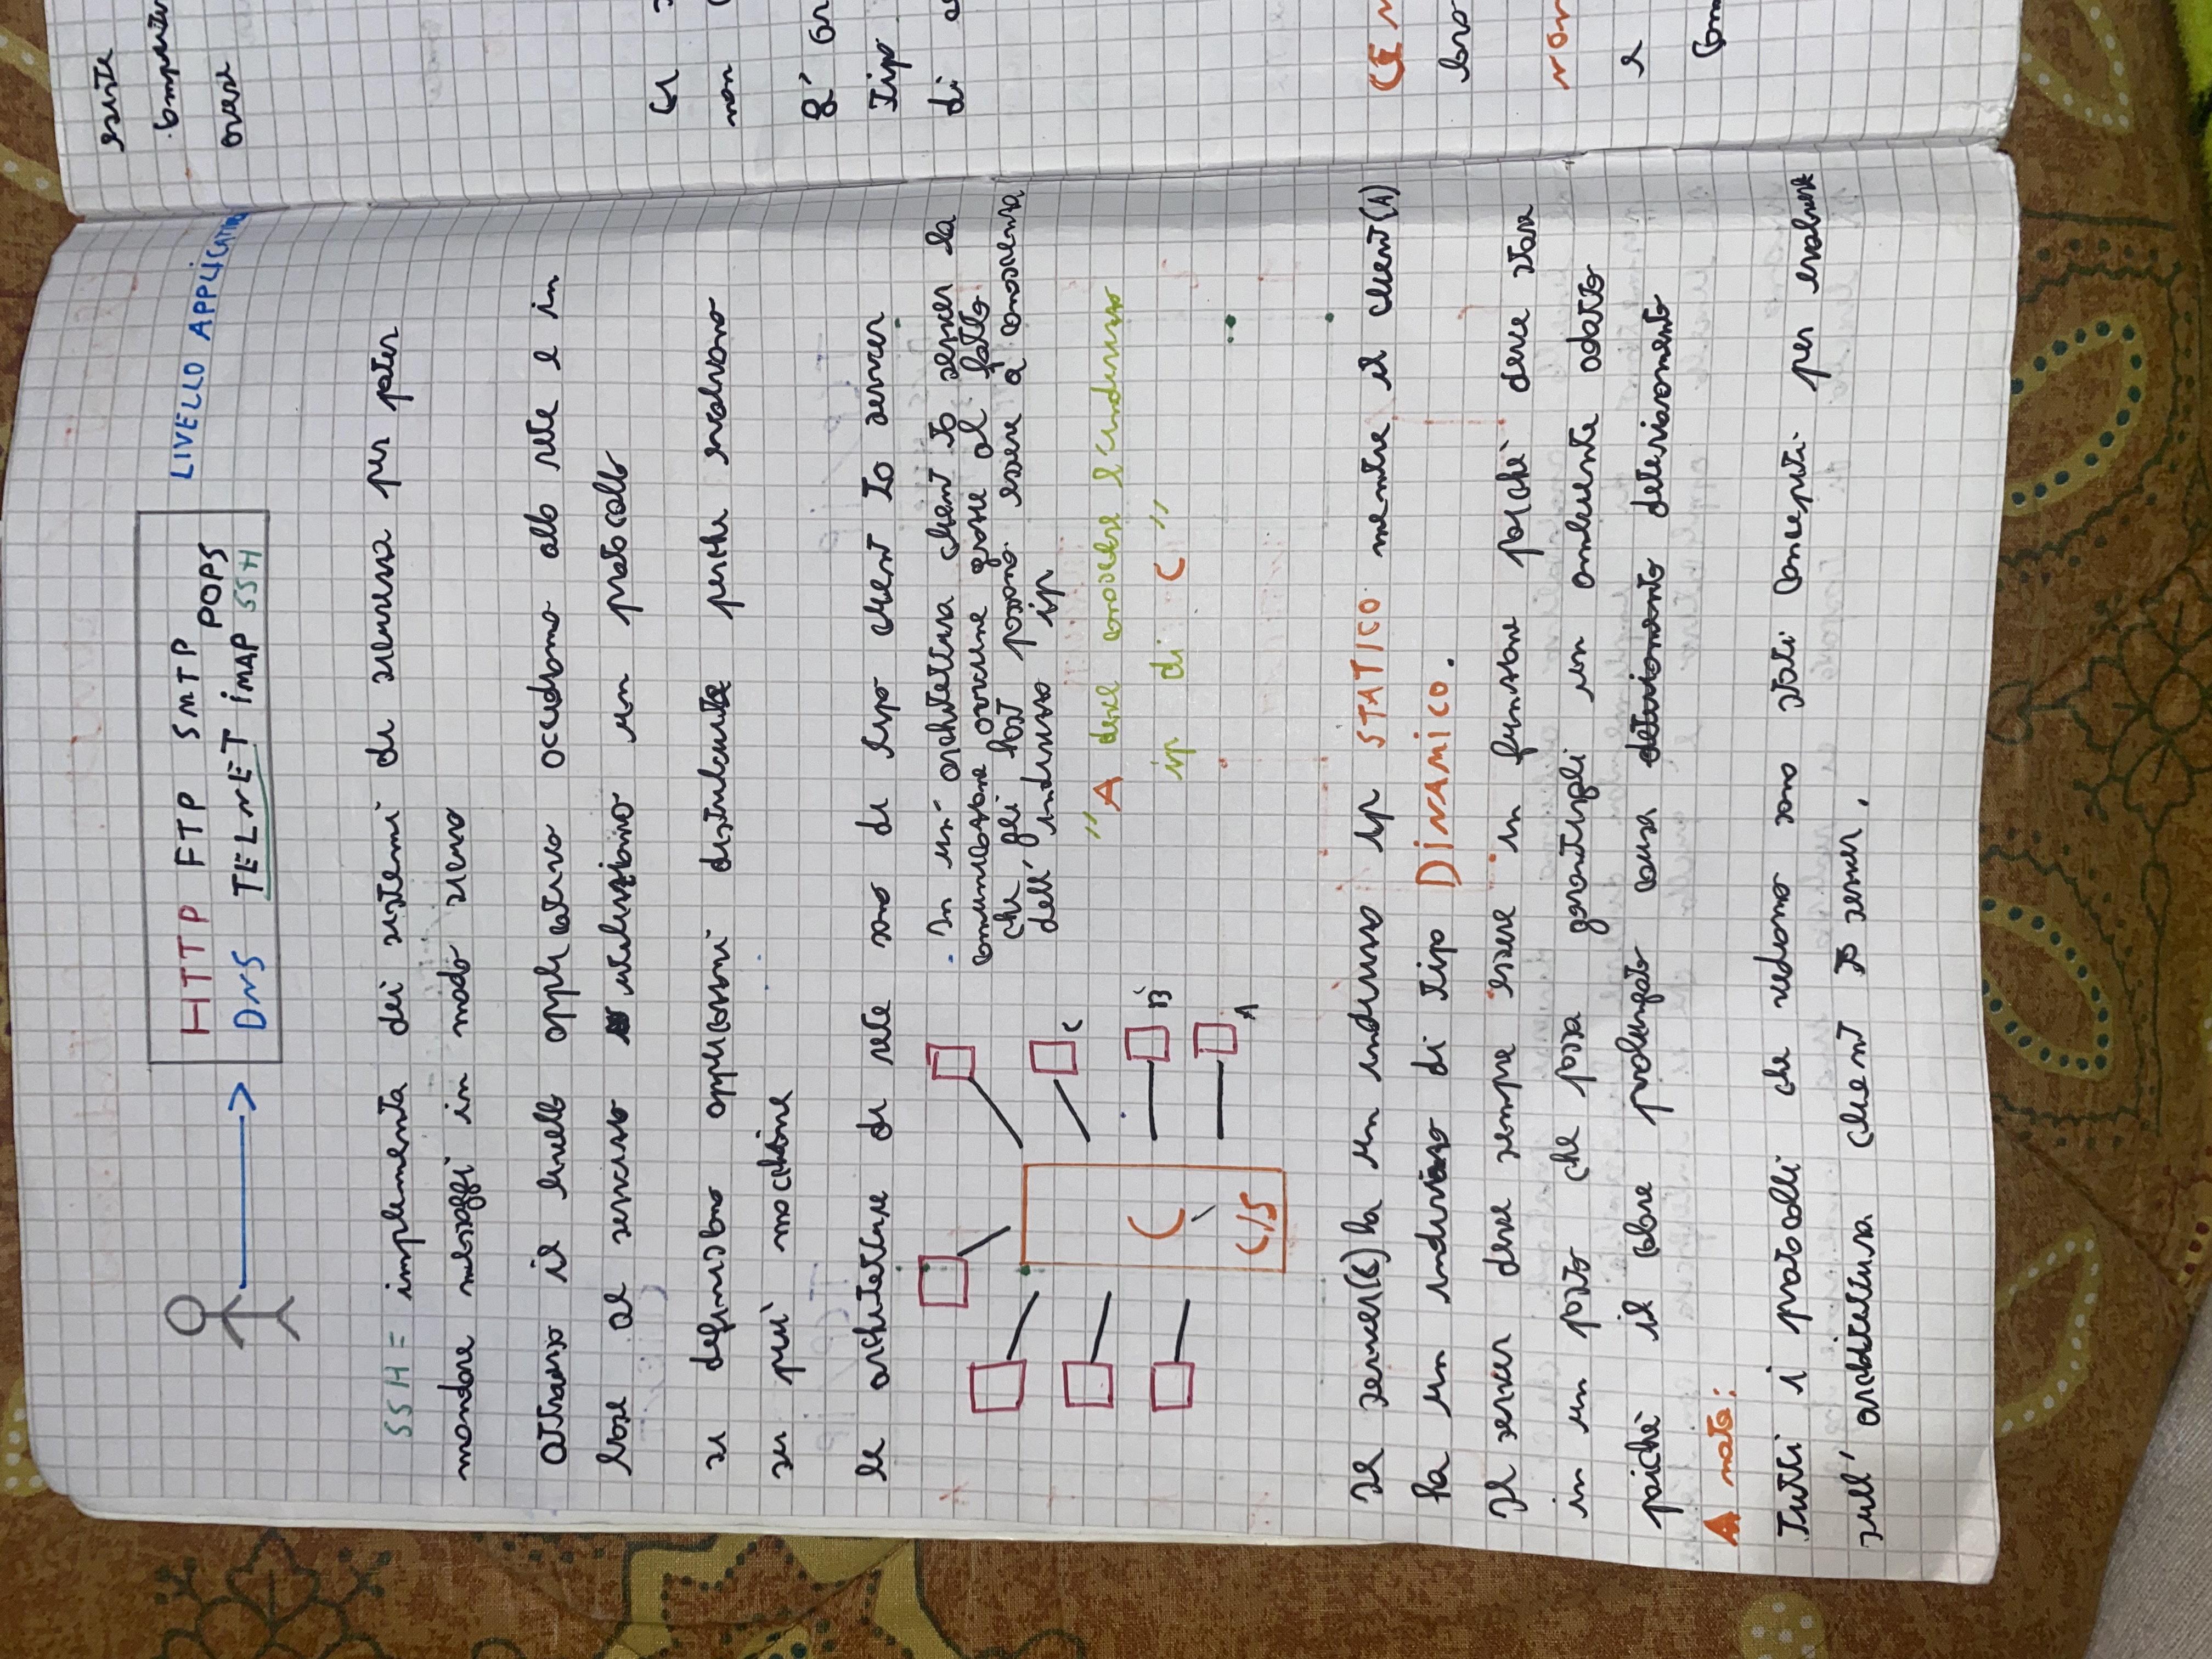 HTTP FTP SMTP POPS
DNS TELNET IMAP SSH
LIVELLO APPLICATIVO
SSH = implementa dei sistemi di sicurezza per poter
mandare messaggi in modo sicuro
Attraverso il livello applicativo accediamo alla rete e in
base al servizio utilizziamo un protocollo
si definiscono applicazioni distribuite perche risolvono
su più macchine
le architetture di rete sono di tipo client to server
C
B
A
C
C/S
· In un' architettura client to server la
comunicazione avviene grazie al fatto
che gli host possono essere a conoscenza
dell' indirizzo ip
"A deve conoscere l'indirizzo
ip di C"
Il server(C) ha un indirizzo ip STATICO mentre il client(A)
ha un indirizzo di tipo DINAMICO.
Il server deve sempre essere in funzione poichè deve stare
in un posto che possa garantirgli un ambiente adatto
poichè il calore prolungato causa deterioramento
A nota:
Tutti i protocolli che vediamo sono stati concepiti per evolvere
sull' architettura client to server.
esiste
computer
avere
non
Tipo
di
loro
non
e